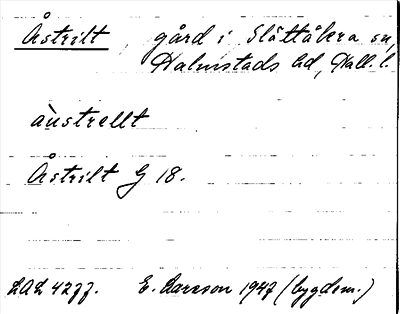 Årstrilt, gård i Slättåkra sn,
Halmstads hd, Hall. l.
àustrellt
Årstrilt G 18.
LAL 4277. E. Larsson 1947 (bygdem.)